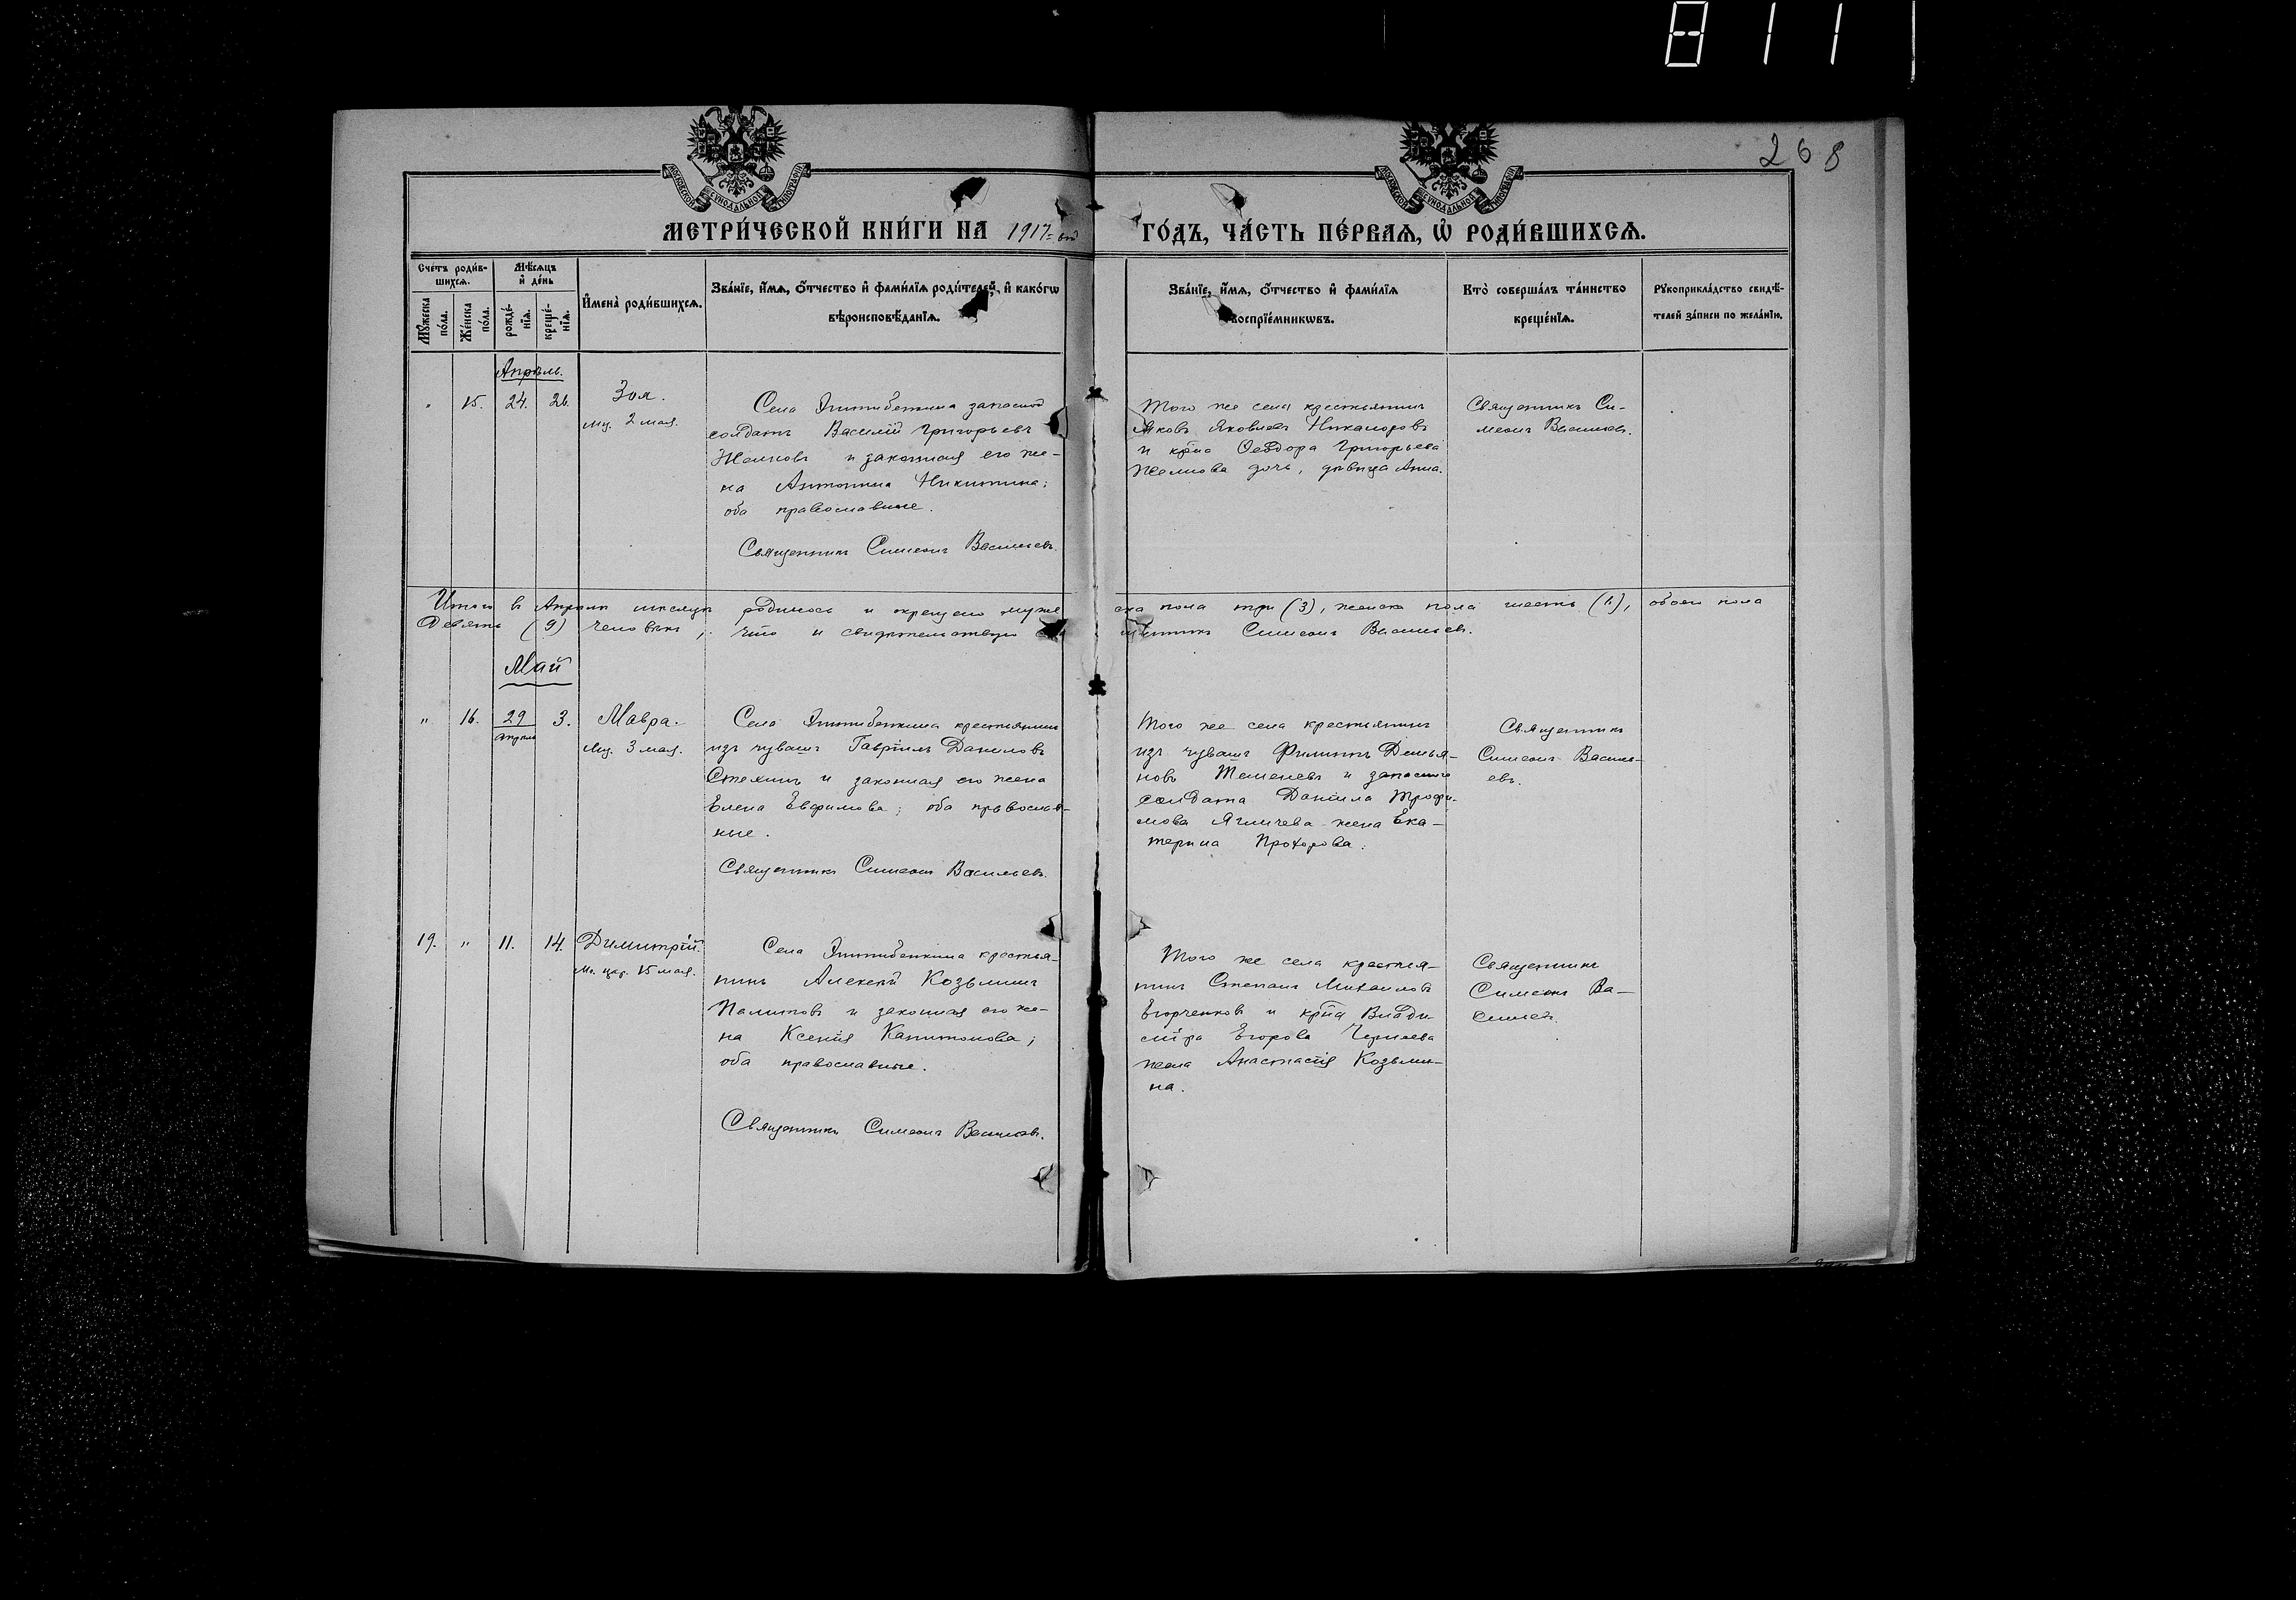 811
268
МОСКОВСКОЙ СѴНОДАЛЬНОЙ ТИПОГРАФІИ
МОСКОВСКОЙ СѴНОДАЛЬНОЙ ТИПОГРАФІИ
МЕТРИ́ЧЕСКОЙ КНИ́ГИ НА 1917-ый
ГО́ДЪ, ЧА́СТЬ ПЕ́РВАѦ, Ѡ҆ РОДИ́ВШИХСѦ.
Сче́тъ роди́в-
шихсѧ.
Мѣ́сѧцъ
и҆ де́нь
Мꙋ́жеска
по́ла.
Же́нска
по́ла.
рожде́-
нїѧ.
креще́-
нїѧ.
И҆мена̀ роди́вшихсѧ.
Зва́нїе, и҆́мѧ, ѻ҆́тчество и҆ фами́лїѧ роди́телей, и҆ како́гѡ
вѣроисповѣ́данїѧ.
Зва́нїе, и҆́мѧ, ѻ҆́тчество и҆ фами́лїѧ
воспрїе́мникѡвъ.
Кто̀ соверша́лъ та́инство
креще́нїѧ.
Рꙋкоприкла́дство свидѣ́-
телей за́писи по жела́нїю.
Апрѣль.
" 15. 24. 26.
Зоя.
мц. 2 мая.
Села запасной
солдатъ Василій Григорьевъ
и законная его же-
на Антонина Никитина;
оба православные.
Священникъ Симеонъ Васильевъ.
Того же села крестьянинъ
Яковъ Яковлевъ Никаноровъ
и кр-на Ѳеодора Григорьева
дочь, дѣвица Анна.
Священникъ Си-
меонъ Васильевъ.
Итого въ Апрѣлѣ мѣсяцѣ родилось и окрещено муже
ска пола три (3), женска пола шесть (6), обоего пола
девять (9) человѣкъ; что и свидѣтельствую
щенникъ Симеонъ Васильевъ.
Май
" 16. 29 3.
апрѣля
Мавра.
Мц. 3 мая.
Села крестьянинъ
изъ чувашъ Гавріилъ Даниловъ
и законная его жена
Елена Евфимова; оба православ-
ные.
Священникъ Симеонъ Васильевъ.
Того же села крестьянинъ
изъ чувашъ Филиппъ Демья-
новъ и запаснаго
солдата Даніила Трофи-
мова жена Ека-
терина Прохорова.
Священникъ
Симеонъ Василь-
евъ.
19. " 11. 14.
Димитрій.
Мч. цар. 15 мая.
Села крестья-
нинъ Алексѣй Козьминъ
и законная его же-
на Ксенія Капитонова;
оба православные.
Священникъ Симеонъ Васильевъ.
Того же села крестья-
нинъ Степанъ Михаиловъ
Егорченковъ и кр-на Влади-
міра Егорова
жена Анастасія Козьми-
на.
Священникъ
Симеонъ Ва-
сильевъ.